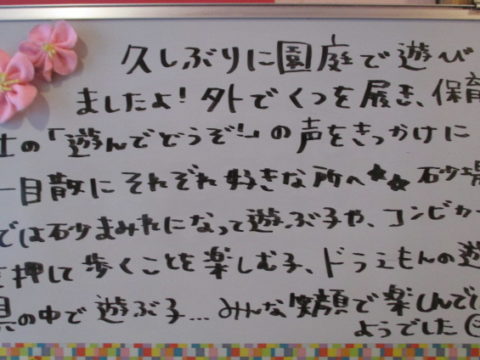 久しぶりに園庭で遊び
ましたよ!外でくつを履き、保育
士の「遊んでどうぞ!」の声をきっかけに
一目散にそれぞれ好きな所へ★★砂場
では砂まみれになって遊ぶ子や、コンビカー
を押して歩くことを楽しむ子、ドラえもんの遊
具の中で遊ぶ子…みんな笑顔で楽しんでい
ようでした